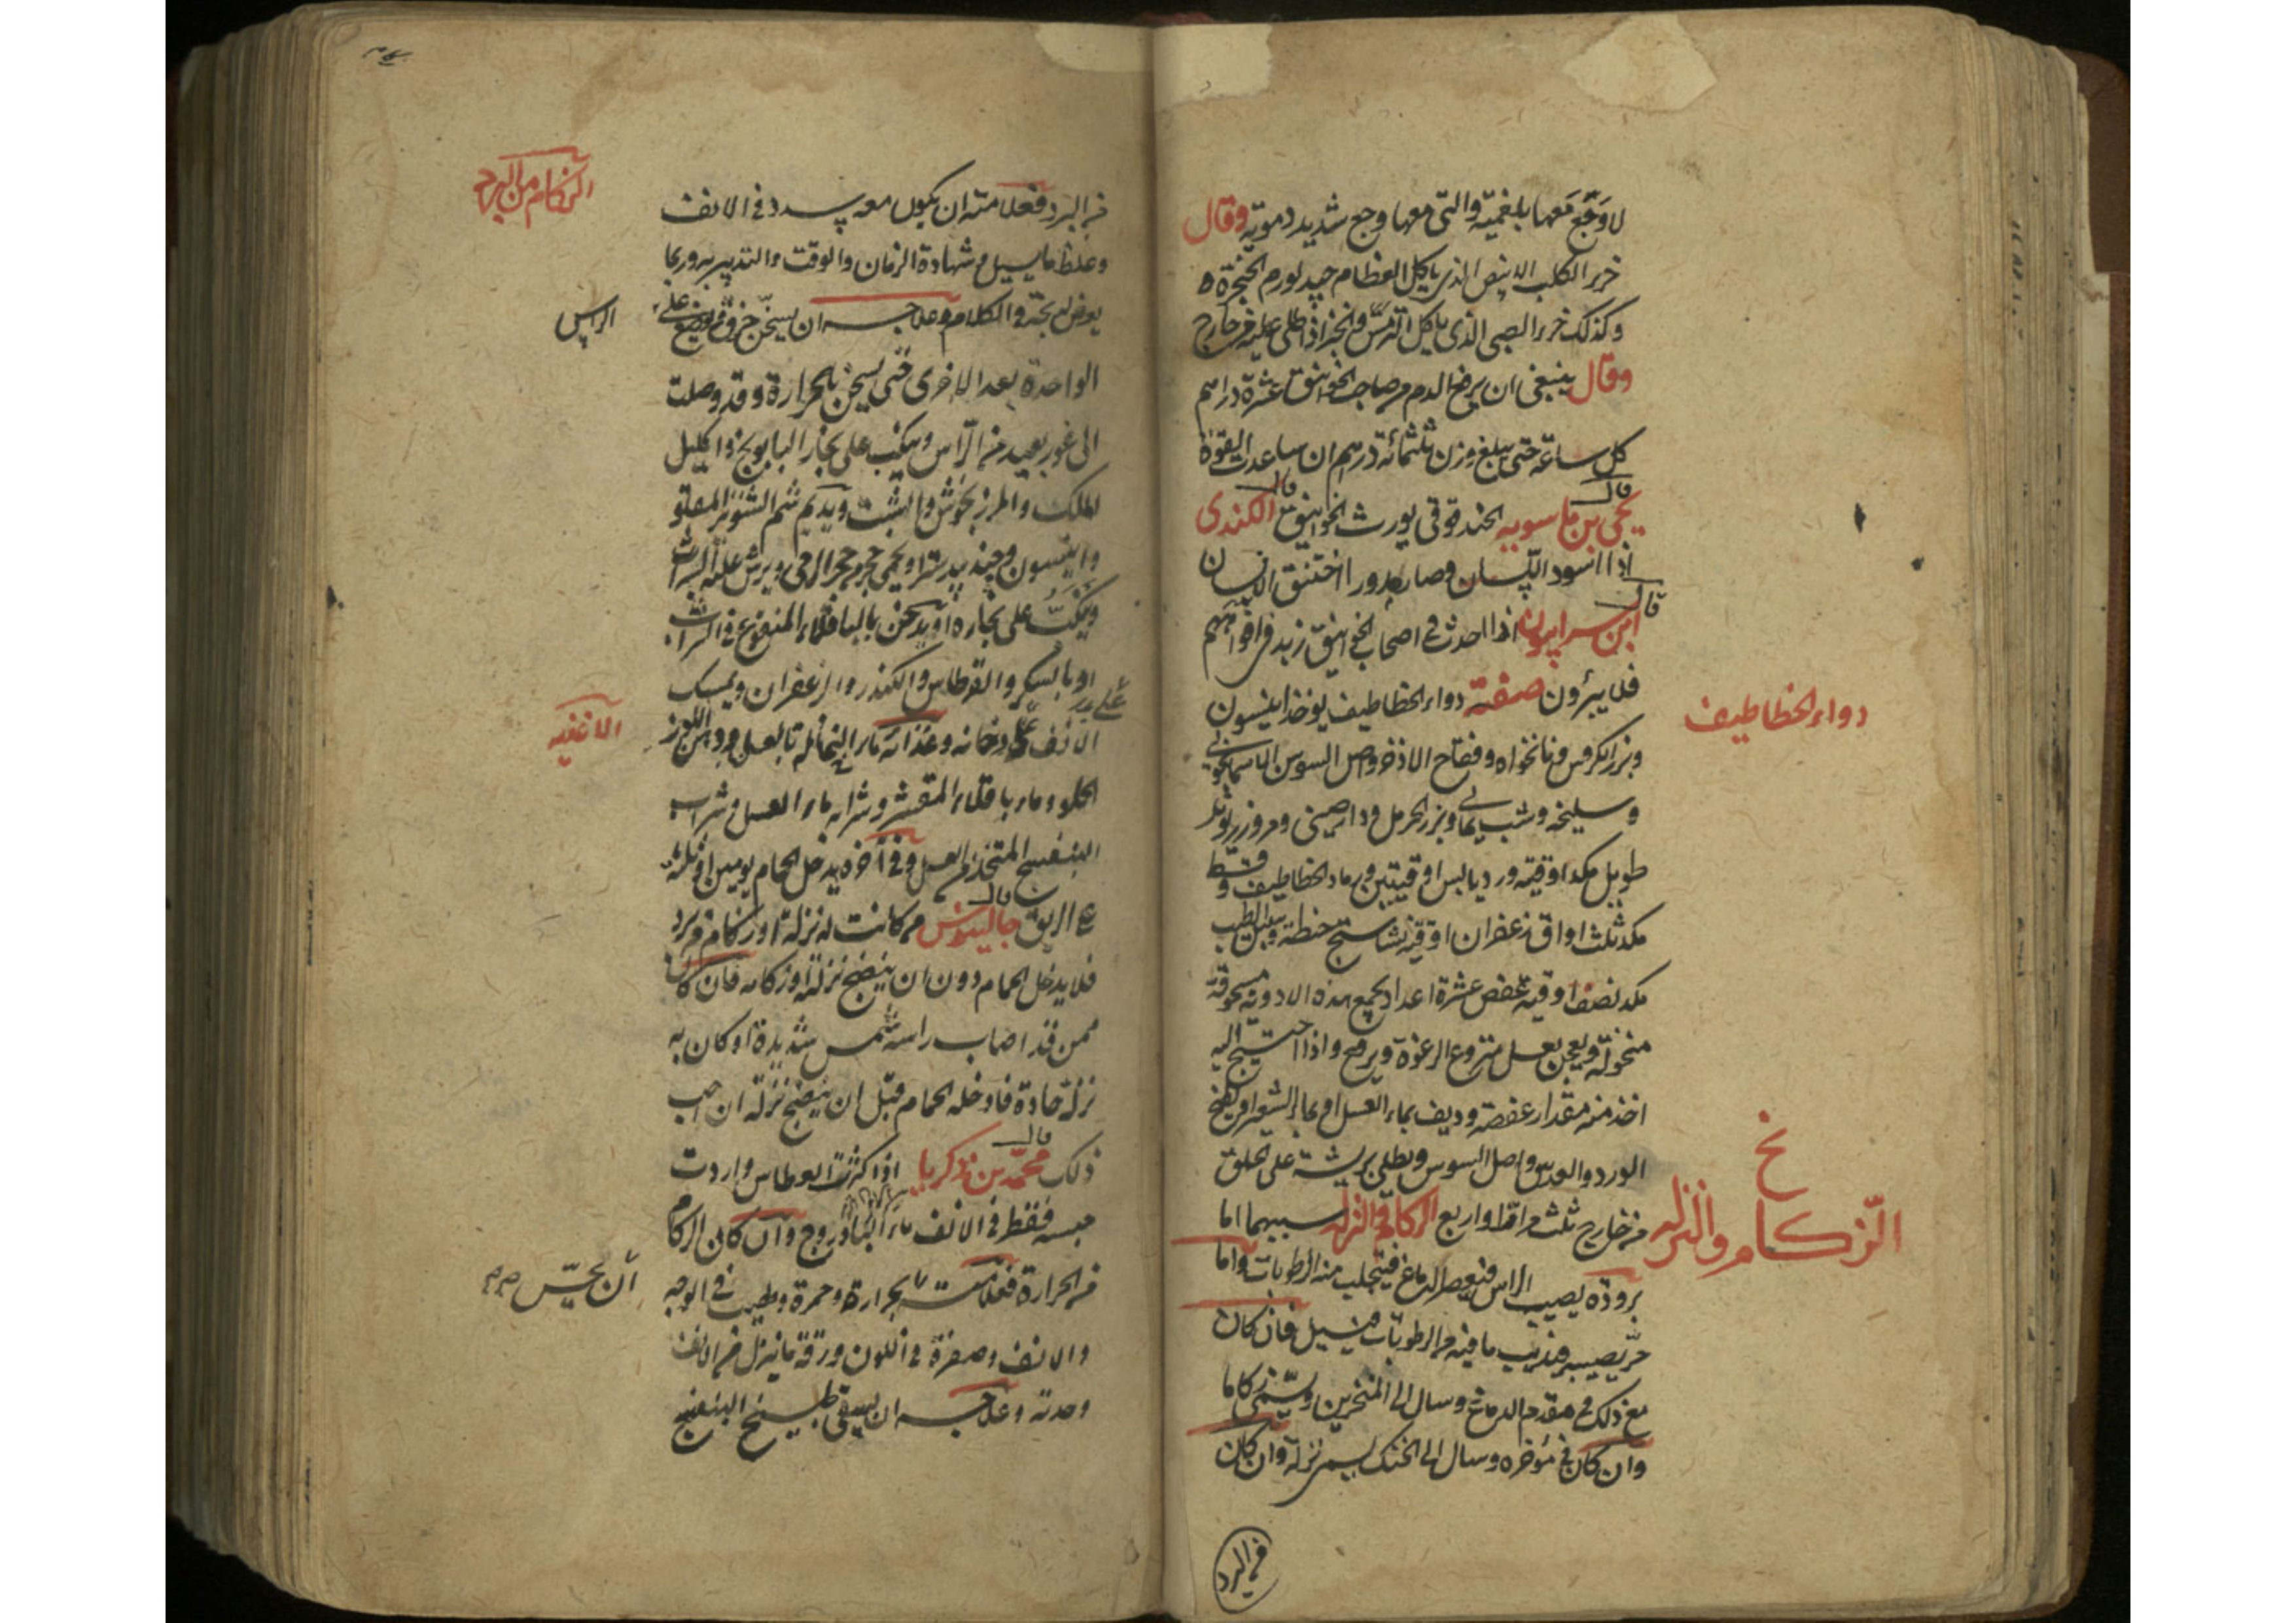 لا وجع معها بلغمية والتى معها وجع شديد دموية وقال
خرء الكلب الابيض الذى ياكل العظام جيد لورم الحنجرة
وكذلك خرء الصبى الذى ياكل الترمس والخبز اذا طلى عليه من خارج
وقال ينبغى ان يخرج الدم من صاحب الخوانيق عشرة دراهم
كل ساعة حتى يبلغ وزن ثلثمائة درهم ان ساعدت القوة
قال
يحيى بن ماسويه الحندقوقى يورث الخوانيق قال الكندى
اذا اسود اللسان وصار مدورا اختنق الانسان
قال
ابن سرابيون اذا حدث فى اصحاب الخوانيق زبد فى افواههم
فلا يبرؤن صفة دواء الخطاطيف يوخذ انيسون
دواء الخطاطيف
وبزر الكرفس ونانخواه وفقاح الاذخر واصل السوسن الاسمانجونى
وسليخة وشب يمانى وبزر الحرمل ودارصينى ومر وزراوند
طويل مكد اوقية ورد يابس اوقيتين ورماد الخطاطيف وقسط
مكد ثلث اواق زعفران اوقية نشاستج حنطة وسنبل الطيب
مكد نصف اوقية عفص عشرة اعداد يجمع هذه الادوية مسحوقة
منخولة ويعجن بعسل منزوع الرغوة ويرفع واذا احتيج اليه
اخذ منه مقدار عفصة وديف بماء العسل او بماء الشعير او بطبيخ
الورد والعدس واصل السوس ويطلى بريشة على الحلق
من خارج ثلث مرات او اربع الزكام والنزلة سببهما اما
نخ
الزكام والنزله
برودة يصيب الراس فيعصر الدماغ فيتحلب منه الرطوبات واما
حر يصيبه فيذيب ما فيه من الرطوبات فيسيل فان كان
مع ذلك فى مقدم الدماغ وسال الى المنخرين ويسمى زكاما
وان كان فى مؤخره وسال الى الحنك يسمى نزلة وان كان
من البرد
من البرد فعلامته ان يكون معه سدد فى الانف
الزكام من البرد
وغلظ ما يسيل وشهادة الزمان والوقت والتدبير وربما
يعرض له بحة فى الكلام وعلاجه ان يسخن خرق ويوضع على
الراس
الواحدة بعد الاخرى حتى يسخن بالحرارة وقد وصلت
الى غور بعيد من الراس ويكب على بخار البابونج واكليل
الملك والمرزنجوش والشبت ويديم شم الشونيز المقلو
وانيسون وجندبيدستر او يحمى حجر من حجر الرحى ويرش عليه الشراب
ويكب على بخاره او يدخن بالباقلاء المنقوع فى الشراب
او بالسكر والقرطاس والكندر والزعفران ويمسك
الانف على دخانه وغذائه ماء النخالة بالعسل ودهن اللوز
الاغذيه
الحلو وماء باقلاء المقشر وشرابه ماء العسل وشراب
البنفسج المتخذ من العسل وفى آخره يدخل الحمام يومين او ثلثة
على الريق قال جالينوس من كانت له نزلة او زكام من برد
فلا يدخل الحمام دون ان ينضج نزلته او زكامه فان كان
ممن قد اصاب راسه شمس شديدة او كان به
نزلة حادة فادخله الحمام قبل ان ينضج نزلة ان احب
ذلك قال محمد بن زكريا اذا كثرت العطاس واردت
حبسه فقطر فى الانف ماء الباذروج وان كان الزكام
من الحرارة فعلامته الحرارة وحمرة ولهيب فى الوجه
والانف وصفرة فى اللون ورقة ما ينزل من الانف
وحدته وعلاجه ان يسقى طبيخ البنفسج